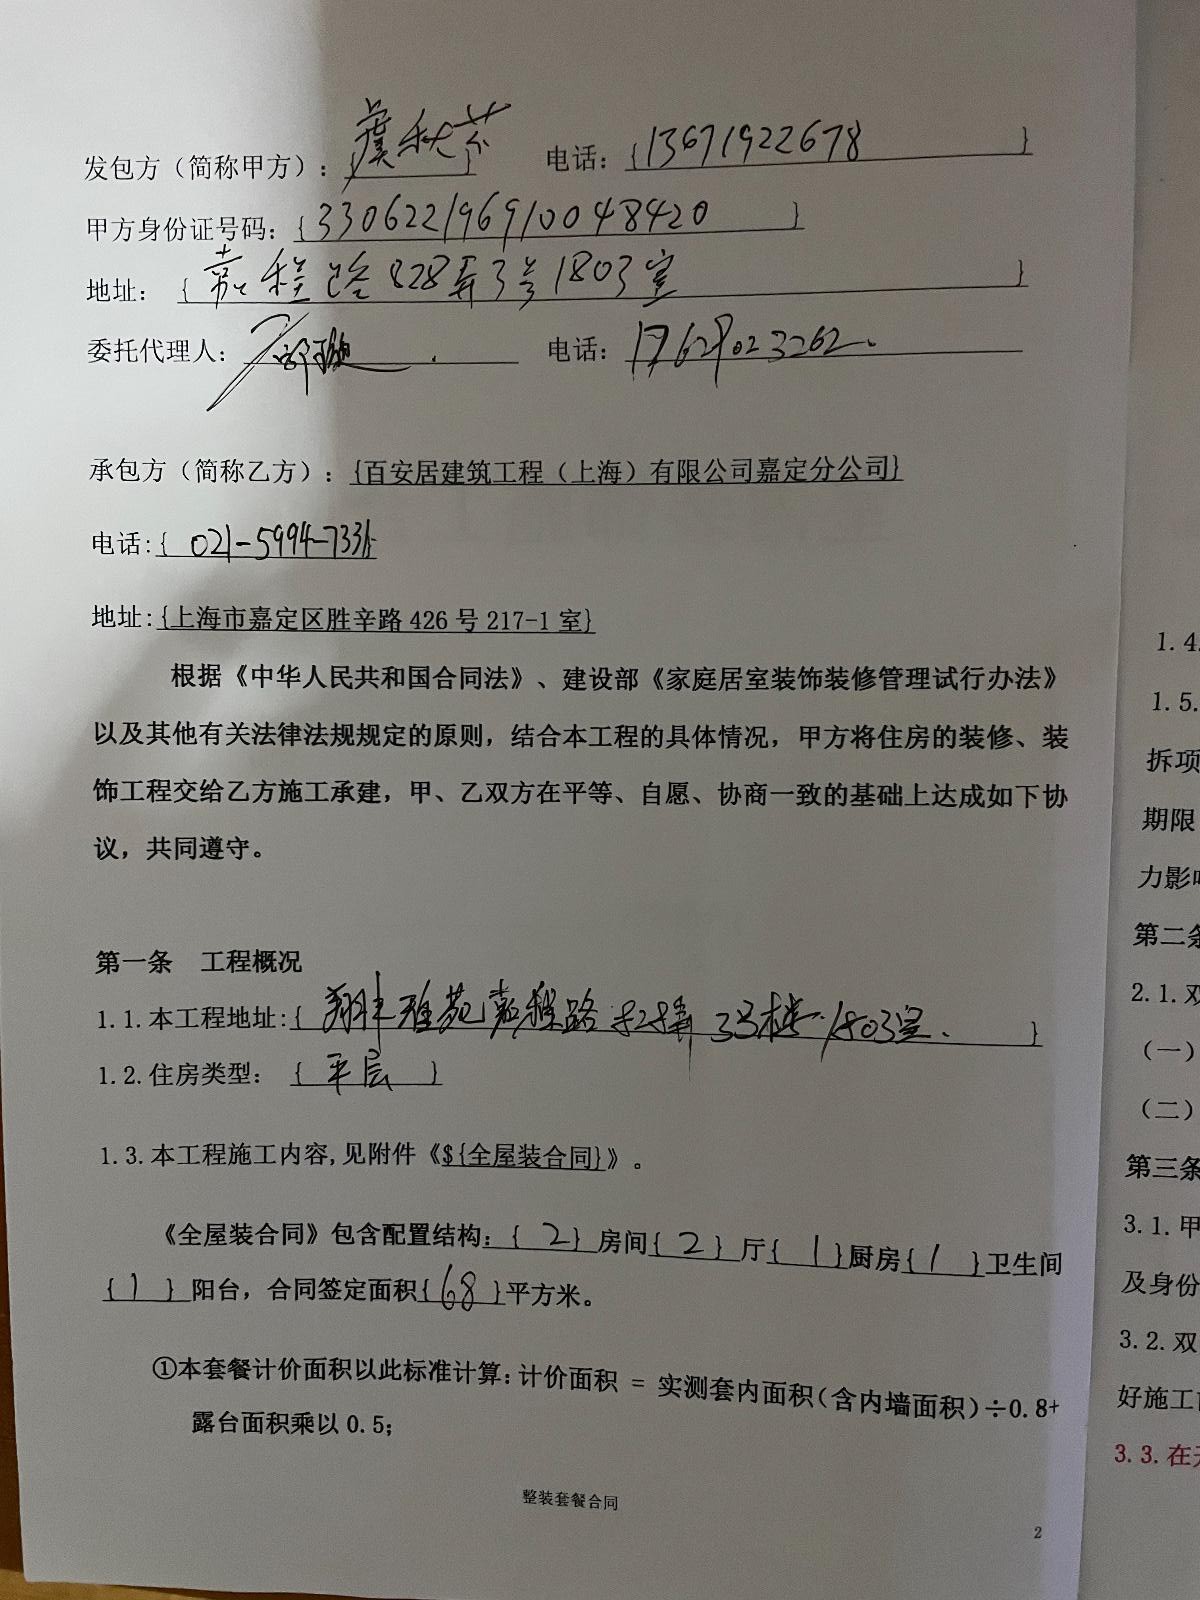 发包方（简称甲方）：虞秋芬 电话：{13671922678}
甲方身份证号码：{330622196910048420}
地址： {嘉程路828弄3号1803室}
委托代理人： 电话：17629023262.
承包方（简称乙方）：{百安居建筑工程（上海）有限公司嘉定分公司}
电话:{ 021-5994-7331
地址:{上海市嘉定区胜辛路 426 号 217-1 室}
根据《中华人民共和国合同法》、建设部《家庭居室装饰装修管理试行办法》
以及其他有关法律法规规定的原则，结合本工程的具体情况，甲方将住房的装修、装
饰工程交给乙方施工承建，甲、乙双方在平等、自愿、协商一致的基础上达成如下协
议，共同遵守。
第一条 工程概况
1.1.本工程地址:{ 翔丰雅苑嘉程路 3号楼 1803室. }
1.2.住房类型： { 平层 }
1.3.本工程施工内容,见附件《${全屋装合同}》。
《全屋装合同》包含配置结构:{ 2 }房间{ 2 }厅{ 1 }厨房{ 1 }卫生间
{ 1 }阳台，合同签定面积{ 68 }平方米。
①本套餐计价面积以此标准计算：计价面积 = 实测套内面积(含内墙面积)÷0.8+
露台面积乘以 0.5；
整装套餐合同
2
1.4.
1.5.
拆项
期限
力影
第二条
2.1.双
（一）
（二）
第三条
3.1.甲
及身份
3.2.双
好施工
3.3.在